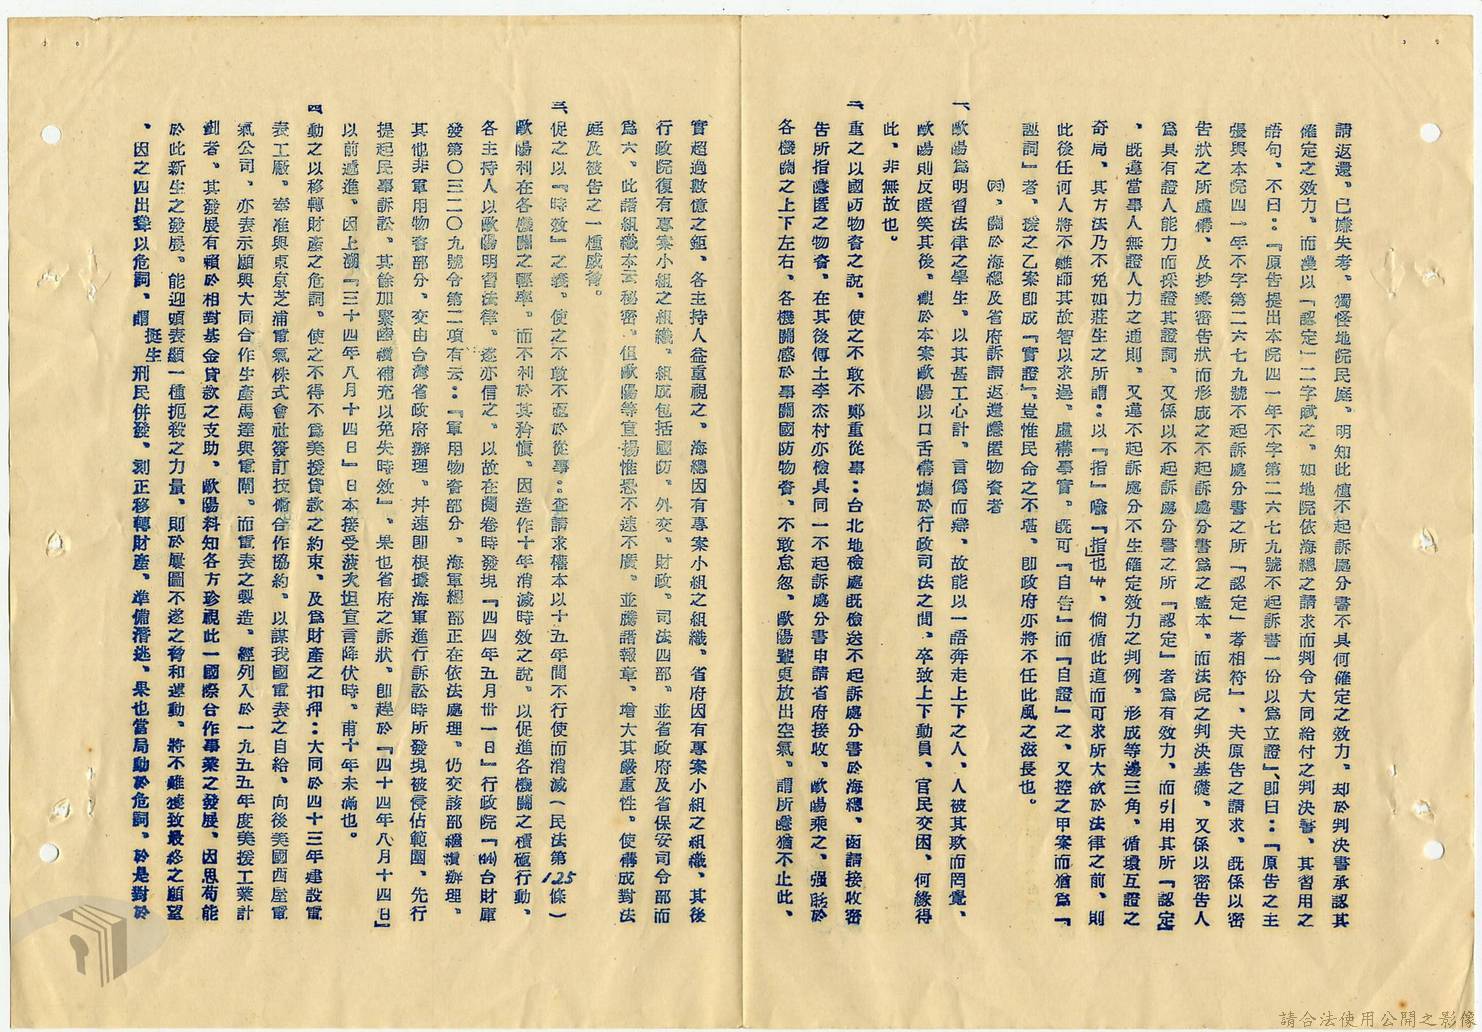 請返還、已嫌失考、獨怪地院民庭、明知此種不起訴處分書不具何確定之效力、却於判決書承認其
確定之效力、而儼以「認定」二字賦之、如地院依海總之請求而判令大同給付之判決書、其習用之
語句、不曰：『原告提出本院四一年不字第二六七九號不起訴書一份以爲立證』、即曰：『原告之主
張與本院四一年不字第二六七九號不起訴處分書之所「認定」者相符』、夫原告之請求、既係以密
告狀之所虛構、及抄錄密告狀而形成之不起訴處分書爲之藍本、而法院之判決基礎、又係以密告人
爲具有證人能力而採證其證詞、又係以不起訴處分書之所『認定』者爲有效力、而引用其所『認定』
、既違當事人無證人力之通則、又違不起訴處分不生確定效力之判例、形成等邊三角、循環互證之
奇局、其方法乃不免如莊生之所謂：以「指」喻『指也』、倘循此道而可求所大欲於法律之前、則
此後任何人將不難師其故智以求逞、虛構事實、既可『自告』而『自證』之、又控之甲案而猶爲『
誣詞』者、援之乙案即成『實證』、豈惟民命之不堪、即政府亦將不任此風之滋長也。
㈣、關於海總及省府訴請返還隱匿物資者
一、歐陽爲明習法律之學生、以其甚工心計、言僞而辯、故能以一語奔走上下之人、人被其欺而罔覺、
歐陽則反匿笑其後、觀於本案歐陽以口舌構煽於行政司法之間、卒致上下動員、官民交困、何緣得
此、非無故也。
二、重之以國防物資之說、使之不敢不鄭重從事：台北地檢處既檢送不起訴處分書於海總、函請接收密
告所指隱匿之物資、在其後傅土李杰村亦檢具同一不起訴處分書申請省府接收、歐陽乘之、强聒於
各機關之上下左右、各機關感於事關國防物資、不敢怠忽、歐陽輩更放出空氣、謂所隱猶不止此、
實超過數億之鉅、各主持人益重視之、海總因有專案小組之組織、省府因有專案小組之組織、其後
行政院復有專案小組之組織、組成包括國防、外交、財政、司法四部、並省政府及省保安司令部而
爲六、此諸組織本云秘密、但歐陽等宣揚惟恐不速不廣、並騰諸報章、增大其嚴重性、使構成對法
庭及被告之一種威脅。
三、促之以『時效』之義、使之不敢不亟於從事：查請求權本以十五年間不行使而消滅（民法第125條）
歐陽利在各機關之輕率、而不利於其矜愼、因造作十年消滅時效之說、以促進各機關之積極行動、
各主持人以歐陽明習法律、遂亦信之、以故在閱卷時發現『四四年五月卅一日』行政院『㈣台財庫
發第〇三二〇九號令第二項有云：『軍用物資部分、海軍總部正在依法處理、仍交該部繼續辦理、
其他非軍用物資部分、交由台灣省政府辦理、幷速即根據海軍進行訴訟時所發現被侵佔範圍、先行
提起民事訴訟、其餘加緊函續補充以免失時效』、果也省府之訴狀、即趕於『四十四年八月十四日』
以前遞進、因上溯『三十四年八月十四日』日本接受波次坦宣言降伏時、甫十年未滿也。
四、動之以移轉財產之危詞、使之不得不爲美援貸款之約束、及爲財產之扣押：大同於四十三年建設電
表工廠、奉准與東京芝浦電氣株式會社簽訂技術合作協約、以謀我國電表之自給、向後美國西屋電
氣公司、亦表示願與大同合作生產馬達與電閘、而電表之製造、經列入於一九五五年度美援工業計
劃者、其發展有賴於相對基金貸款之支助、歐陽料知各方珍視此一國際合作事業之發展、因思苟能
於此新生之發展、能迎頭表顯一種扼殺之力量、則於屢圖不遂之脅和運動、將不難獲致最終之願望
、因之四出聳以危詞、謂挺生刑民併發、刻正移轉財產、準備潛逃、果也當局動於危詞、於是對於
請合法使用公開之影像